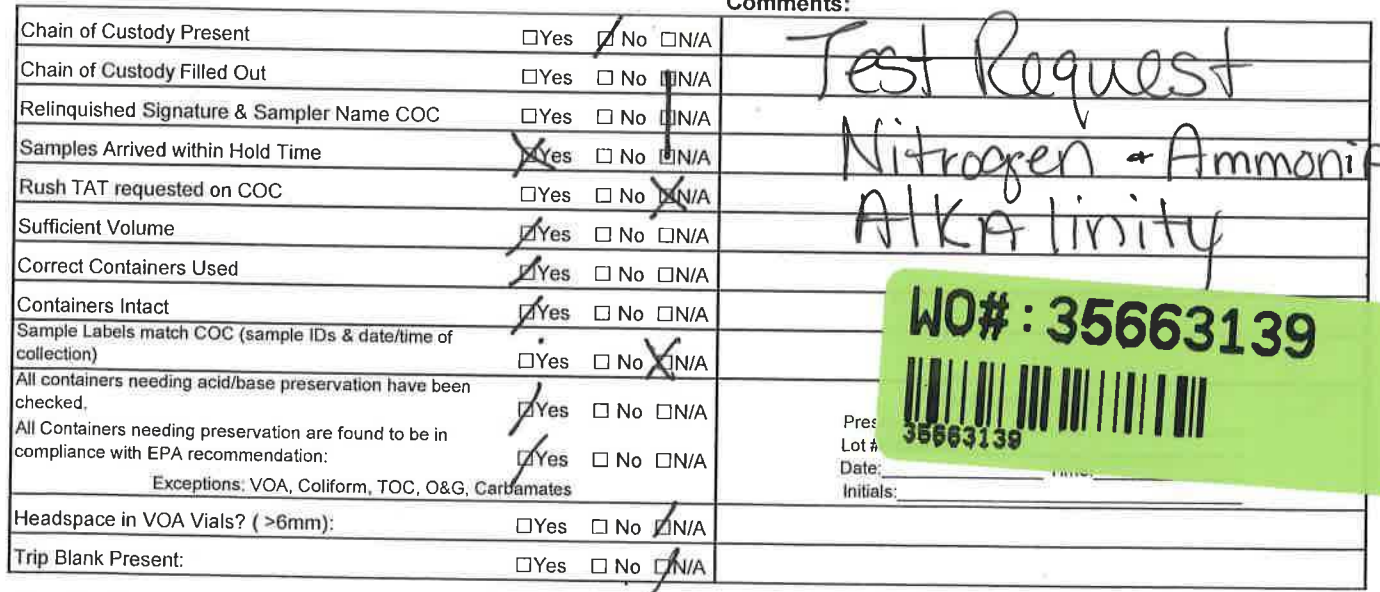 Comments:
Chain of Custody Present □Yes ☒ No □N/A
Test Request
Chain of Custody Filled Out □Yes □ No ☒N/A
Relinquished Signature & Sampler Name COC □Yes □ No ☒N/A
Nitrogen + Ammonia
Samples Arrived within Hold Time ☒Yes □ No □N/A
Rush TAT requested on COC □Yes □ No ☒N/A
AlKAlinity
Sufficient Volume ☒Yes □ No □N/A
Correct Containers Used ☒Yes □ No □N/A
Containers Intact ☒Yes □ No □N/A
WO#:35663139
Sample Labels match COC (sample IDs & date/time of
collection) □Yes □ No ☒N/A
All containers needing acid/base preservation have been
checked. ☒Yes □ No □N/A
Pres
35663139
All Containers needing preservation are found to be in
compliance with EPA recommendation: ☒Yes □ No □N/A
Lot #
Date:
Exceptions: VOA, Coliform, TOC, O&G, Carbamates
Initials:
Headspace in VOA Vials? ( >6mm): □Yes □ No ☒N/A
Trip Blank Present: □Yes □ No ☒N/A